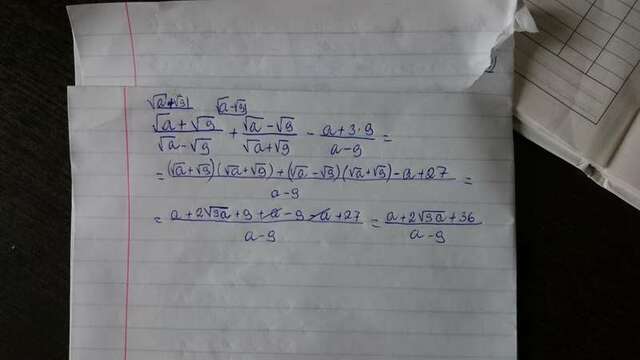 √a+√9 √a-√9
(√a + √9)/(√a - √9) + (√a - √9)/(√a + √9) - (a + 3·9)/(a - 9) =
= ((√a + √9)(√a + √9) + (√a - √9)(√a + √9) - a + 27)/(a - 9) =
= (a + 2√9a + 9 + a - 9 - a + 27)/(a - 9) = (a + 2√9a + 36)/(a - 9)